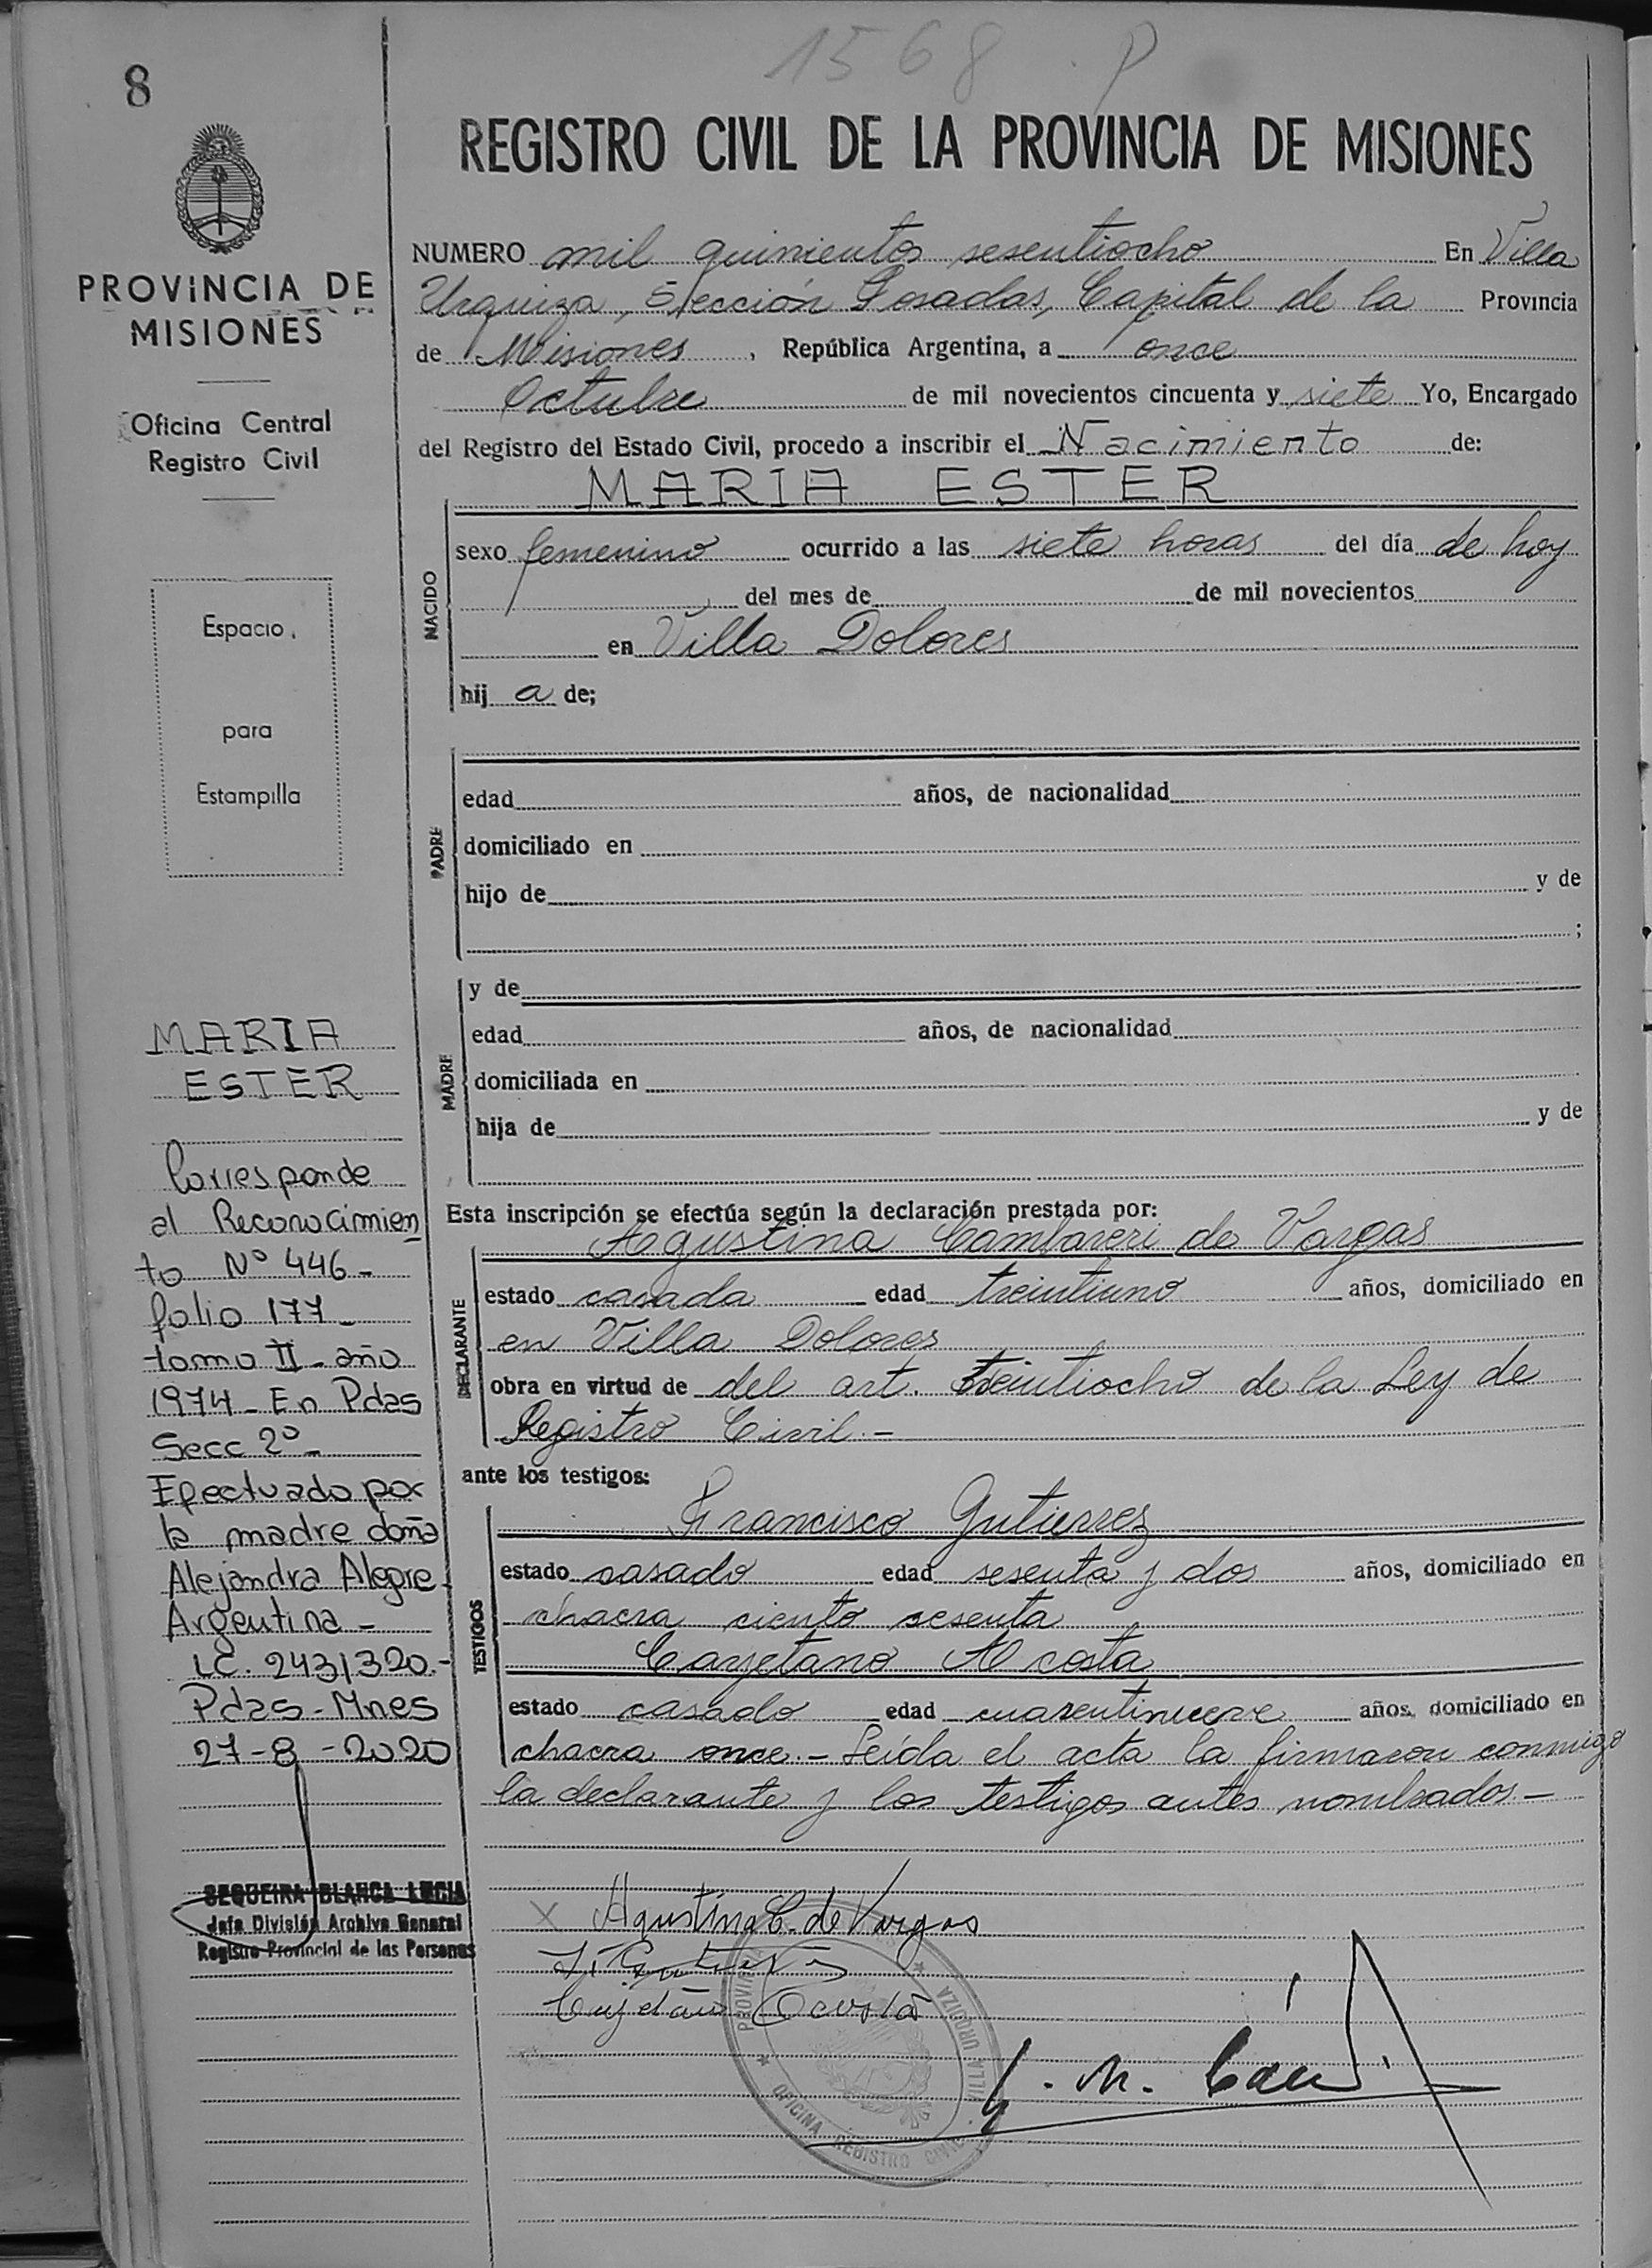 1568 P
8
REGISTRO CIVIL DE LA PROVINCIA DE MISIONES
PROVINCIA DE
MISIONES
Oficina Central
Registro Civil
Espacio
para
Estampilla
NUMERO mil quinientos sesentiocho En Villa
Urquiza, Sección Posadas, Capital de la Provincia
de Misiones, República Argentina, a once
Octubre de mil novecientos cincuenta y siete Yo, Encargado
del Registro del Estado Civil, procedo a inscribir el Nacimiento de:
MARIA ESTER
NACIDO
sexo femenino ocurrido a las siete horas del día de hoy
del mes de de mil novecientos
en Villa Dolores
hij a de;
PADRE
edad años, de nacionalidad
domiciliado en
hijo de y de
;
MADRE
y de
edad años, de nacionalidad
domiciliada en
hija de y de
MARIA
ESTER
Corresponde
al Reconocimien
to Nº 446-
folio 177-
tomo II-año
1974-En Pdas
Secc 2º-
Efectuado por
la madre doña
Alejandra Alegre-
Argentina-
LC. 2431320.-
Pdas-Mnes
27-8-2020
SEQUEIRA BLANCA LUCIA
Jefa División Archivo General
Registro Provincial de las Personas
Esta inscripción se efectúa según la declaración prestada por:
DECLARANTE
Agustina Cambareri de Vargas
estado casada edad treintiuno años, domiciliado en
en Villa Dolores
obra en virtud de del art. treintiocho de la Ley de
Registro Civil.-
ante los testigos:
TESTIGOS
Francisco Gutierrez
estado casado edad sesenta y dos años, domiciliado en
chacra ciento sesenta
Cayetano Acosta
estado casado edad cuarentinueve años, domiciliado en
chacra once.- Leída el acta la firmaron conmigo
la declarante y los testigos antes nombrados.-
x Agustina C. de Vargas
Cayetano Acosta
OFICINA REGISTRO CIVIL
VILLA URQUIZA